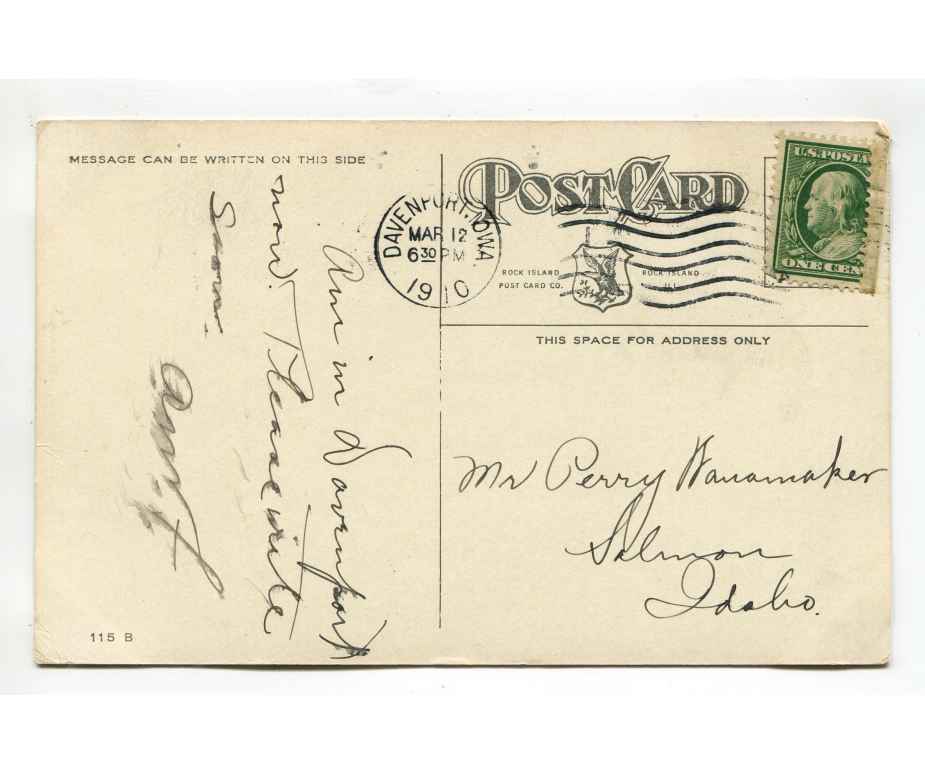 MESSAGE CAN BE WRITTEN ON THIS SIDE
POST CARD
U.S. POSTA
ONE CEN
DAVENPORT, IOWA.
MAR 12
6 30 PM
1910
ROCK ISLAND
POST CARD CO.
ROCK ISLAND
ILL.
THIS SPACE FOR ADDRESS ONLY
Am in Davenport
now. Please write
soon.
Mr Perry Wanamaker
Salmon
Idaho.
115 B